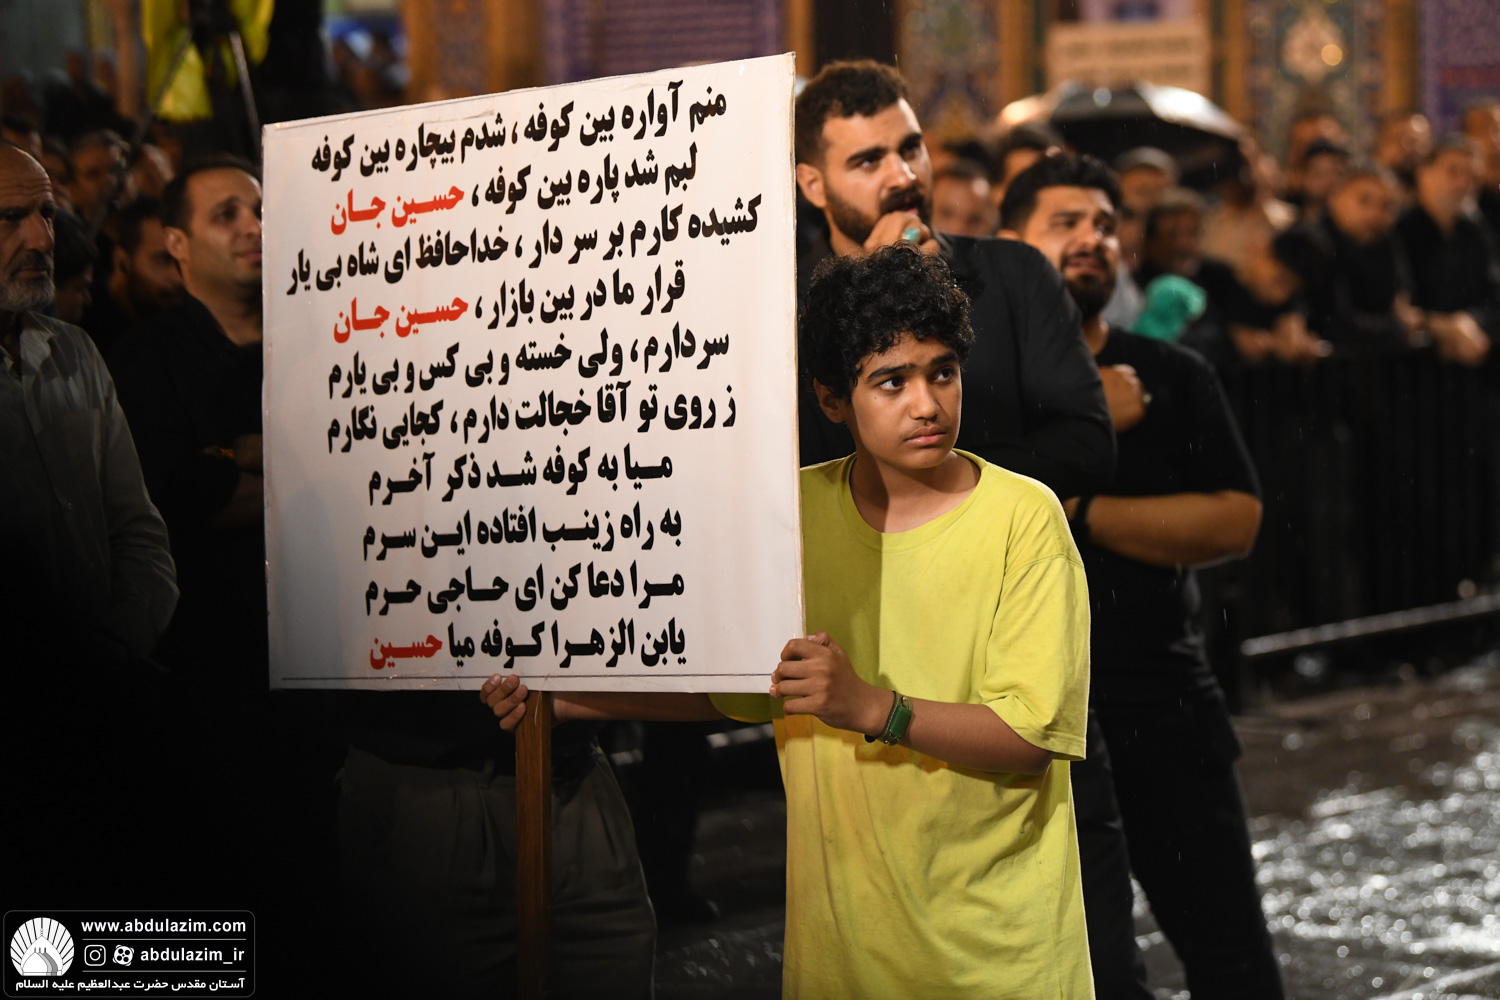 منم آواره بین کوفه ، شدم بیچاره بین کوفه
لبم شد پاره بین کوفه ، حسین جان
کشیده کارم بر سر دار ، خداحافظ ای شاه بی یار
قرار ما در بین بازار ، حسین جان
سردارم ، ولی خسته و بی کس و بی یارم
ز روی تو آقا خجالت دارم ، کجایی نگارم
میا به کوفه شد ذکر آخرم
به راه زینب افتاده این سرم
مرا دعا کن ای حاجی حرم
یابن الزهرا کوفه میا حسین
www.abdulazim.com
abdulazim_ir
آستان مقدس حضرت عبدالعظیم علیه السلام